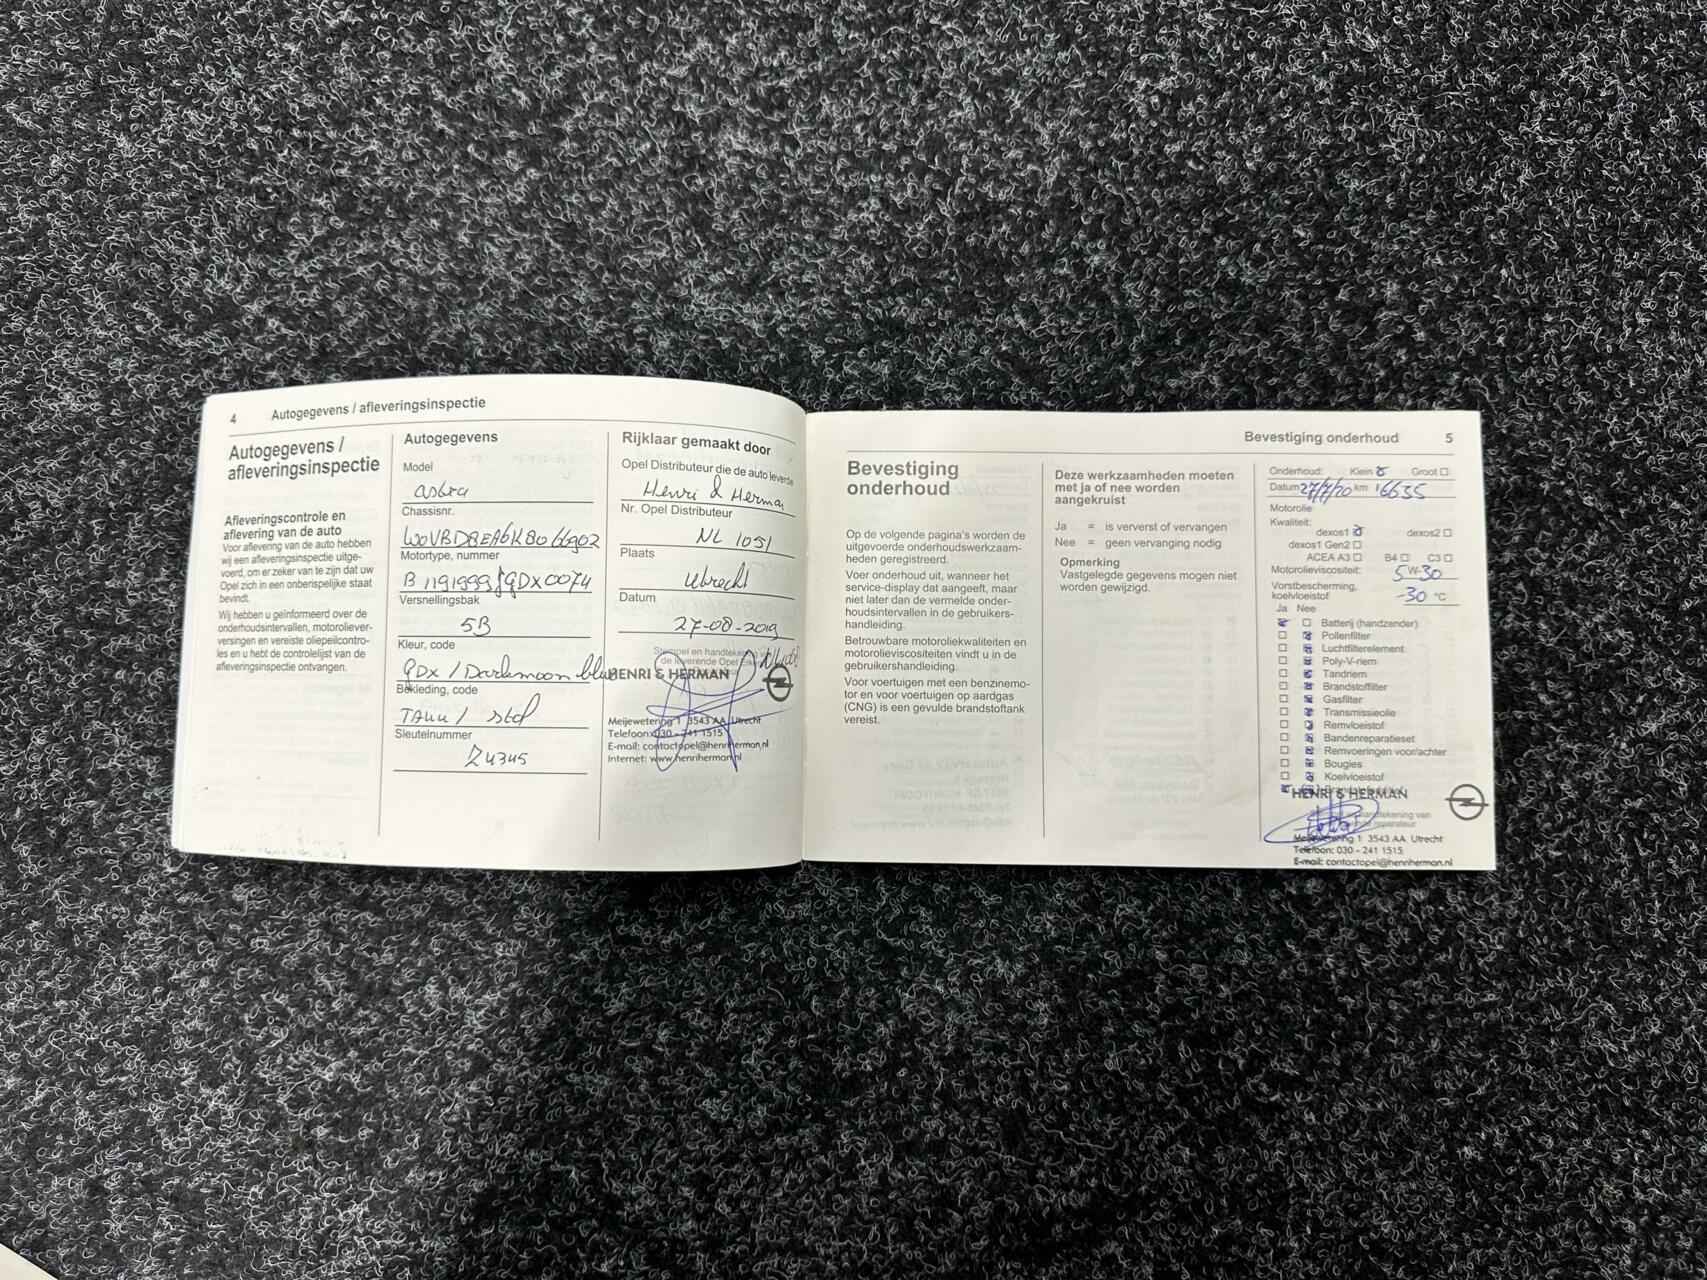 4 Autogegevens / afleveringsinspectie
Autogegevens /
afleveringsinspectie
Afleveringscontrole en
aflevering van de auto
Voor aflevering van de auto hebben
wij een afleveringsinspectie uitge-
voerd, om er zeker van te zijn dat uw
Opel zich in een onberispelijke staat
bevindt.
Wij hebben u geïnformeerd over de
onderhoudsintervallen, motoroliever-
versingen en vereiste oliepeilcontro-
les en u hebt de controlelijst van de
afleveringsinspectie ontvangen.
Autogegevens
Model
astra
Chassisnr.
W0VBD8EA6K8066902
Motortype, nummer
B 1191999
Versnellingsbak
5B
Kleur, code
GDX / Darkmoon blu
Bekleding, code
TAUU / stof
Sleutelnummer
Z4345
Rijklaar gemaakt door
Opel Distributeur die de auto leverde
Henri & Herman
Nr. Opel Distributeur
NL 1051
Plaats
Utrecht
Datum
27-08-2019
Stempel en handtekening
de leverende Opel
HENRI & HERMAN
Meijewetering 1 3543 AA Utrecht
Telefoon: 030 - 241 1515
E-mail: contactopel@henriherman.nl
Internet: www.henriherman.nl
Bevestiging onderhoud 5
Bevestiging
onderhoud
Op de volgende pagina's worden de
uitgevoerde onderhoudswerkzaam-
heden geregistreerd.
Voer onderhoud uit, wanneer het
service-display dat aangeeft, maar
niet later dan de vermelde onder-
houdsintervallen in de gebruikers-
handleiding.
Betrouwbare motoroliekwaliteiten en
motorolieviscositeiten vindt u in de
gebruikershandleiding.
Voor voertuigen met een benzinemo-
tor en voor voertuigen op aardgas
(CNG) is een gevulde brandstoftank
vereist.
Deze werkzaamheden moeten
met ja of nee worden
aangekruist
Ja = is ververst of vervangen
Nee = geen vervanging nodig
Opmerking
Vastgelegde gegevens mogen niet
worden gewijzigd.
Onderhoud: Klein Groot
Datum 27/7/20 km 16635
Motorolie
Kwaliteit:
dexos1 dexos2
dexos1 Gen2
ACEA A3 B4 C3
Motorolieviscositeit: 5W-30
Vorstbescherming,
koelvloeistof -30 °C
Ja Nee
Batterij (handzender)
Pollenfilter
Luchtfilterelement
Poly-V-riem
Tandriem
Brandstoffilter
Gasfilter
Transmissieolie
Remvloeistof
Bandenreparatieset
Remvoeringen voor/achter
Bougies
Koelvloeistof
HENRI & HERMAN
handtekening van
reparateur
Meijewetering 1 3543 AA Utrecht
Telefoon: 030 - 241 1515
E-mail: contactopel@henriherman.nl